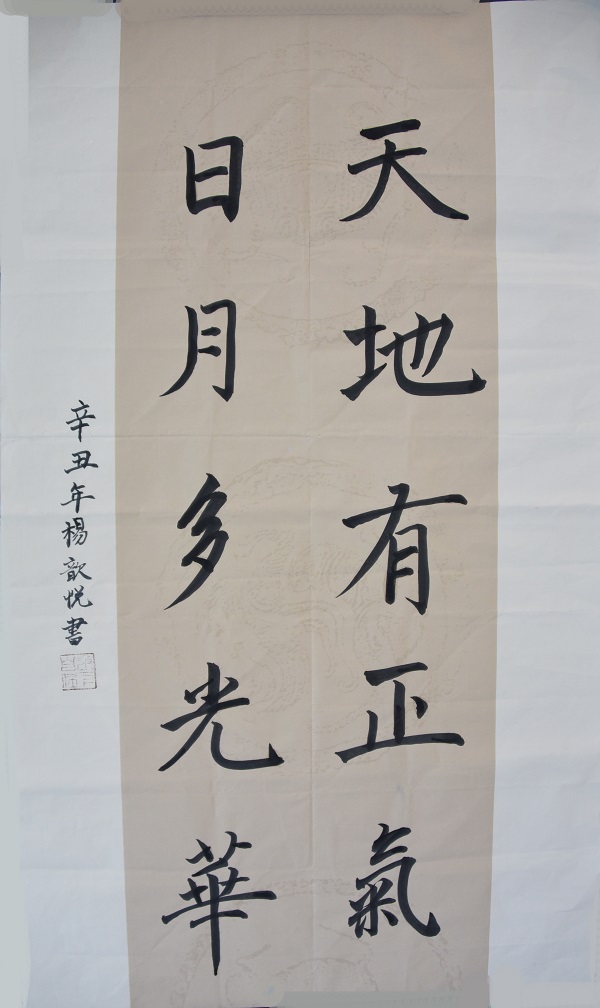 天地有正氣
日月多光華
辛丑年楊歆悅書